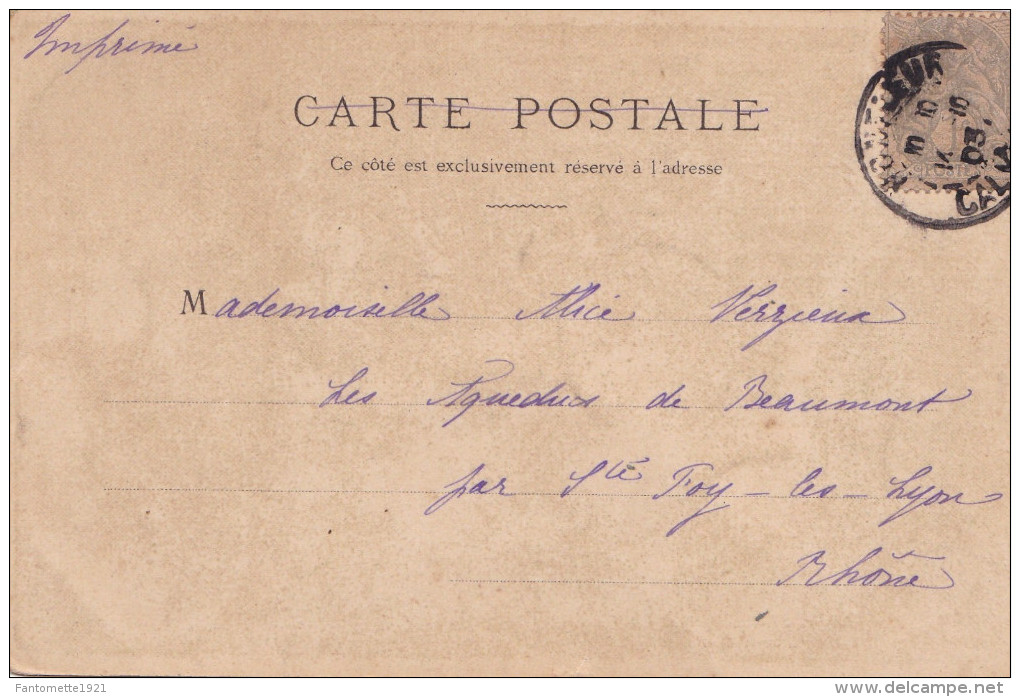 Imprimé
CARTE POSTALE
Ce côté est exclusivement réservé à l'adresse
HONFLEUR
10 10
14 - 10
03
CALV
POSTE
Mademoiselle Alice Verzieux
Les Aqueducs de Beaumont
par Ste Foy-les-Lyon
Rhône
Fantomette1921
www.delcampe.net